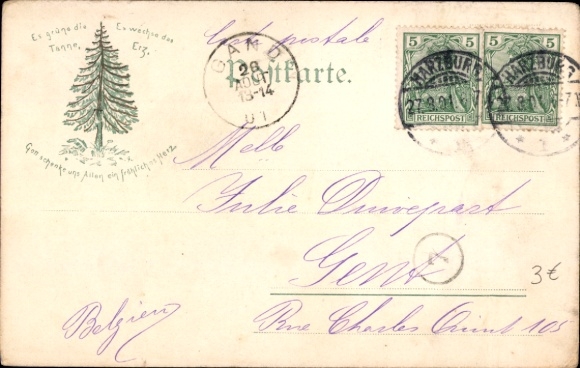 Es grüne die Tanne,
Es wachse das Erz,
Gott schenke uns Allen ein fröhliches Herz
Carte postale.
Postkarte.
GAND
28
AOUT
13-14
01
5 5
5 5
HARZBURG
27.8.01
REICHSPOST
HARZBURG
REICHSPOST
Melle
Julie
Gent
3€
Belgien
Rue Charles Quint 105